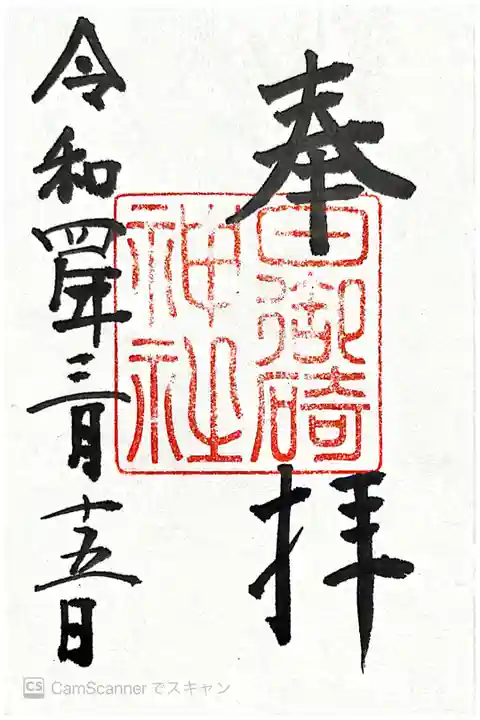 奉拝
日御碕
神社
令和四年三月十五日
CS CamScanner でスキャン